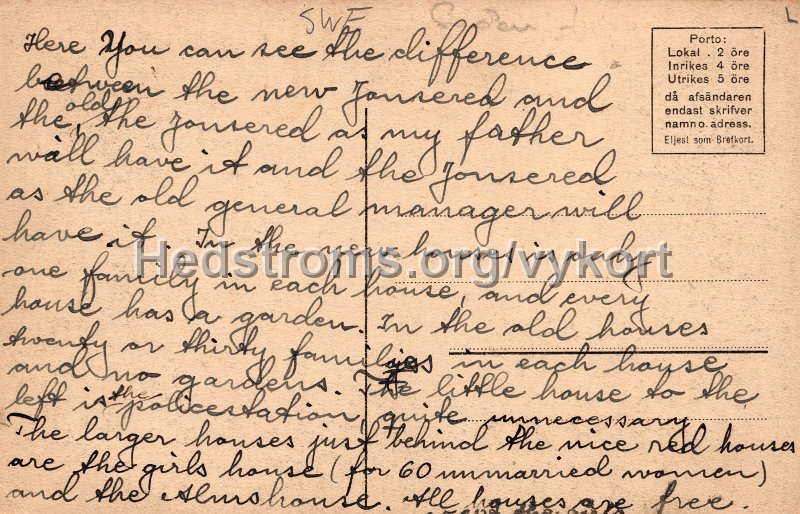 SWE
Here You can see the difference
between the new Jonsered and
the old, the Jonsered as my father
wall have it and the Jonsered
as the old general manager will
have it. In the new houses is only
one family in each house, and every
house has a garden. In the old houses
twenty or thirty families in each house
and no gardens. The little house to the
left is the policestation, quite unnecessary
The larger houses just behind the nice red houses
are the girls house (for 60 unmarried women)
and the Almshouse. All houses are free.
Porto:
Lokal . 2 öre
Inrikes 4 öre
Utrikes 5 öre
då afsändaren
endast skrifver
namn o. adress.
Eljest som Brefkort.
Hedstroms.org/vykort